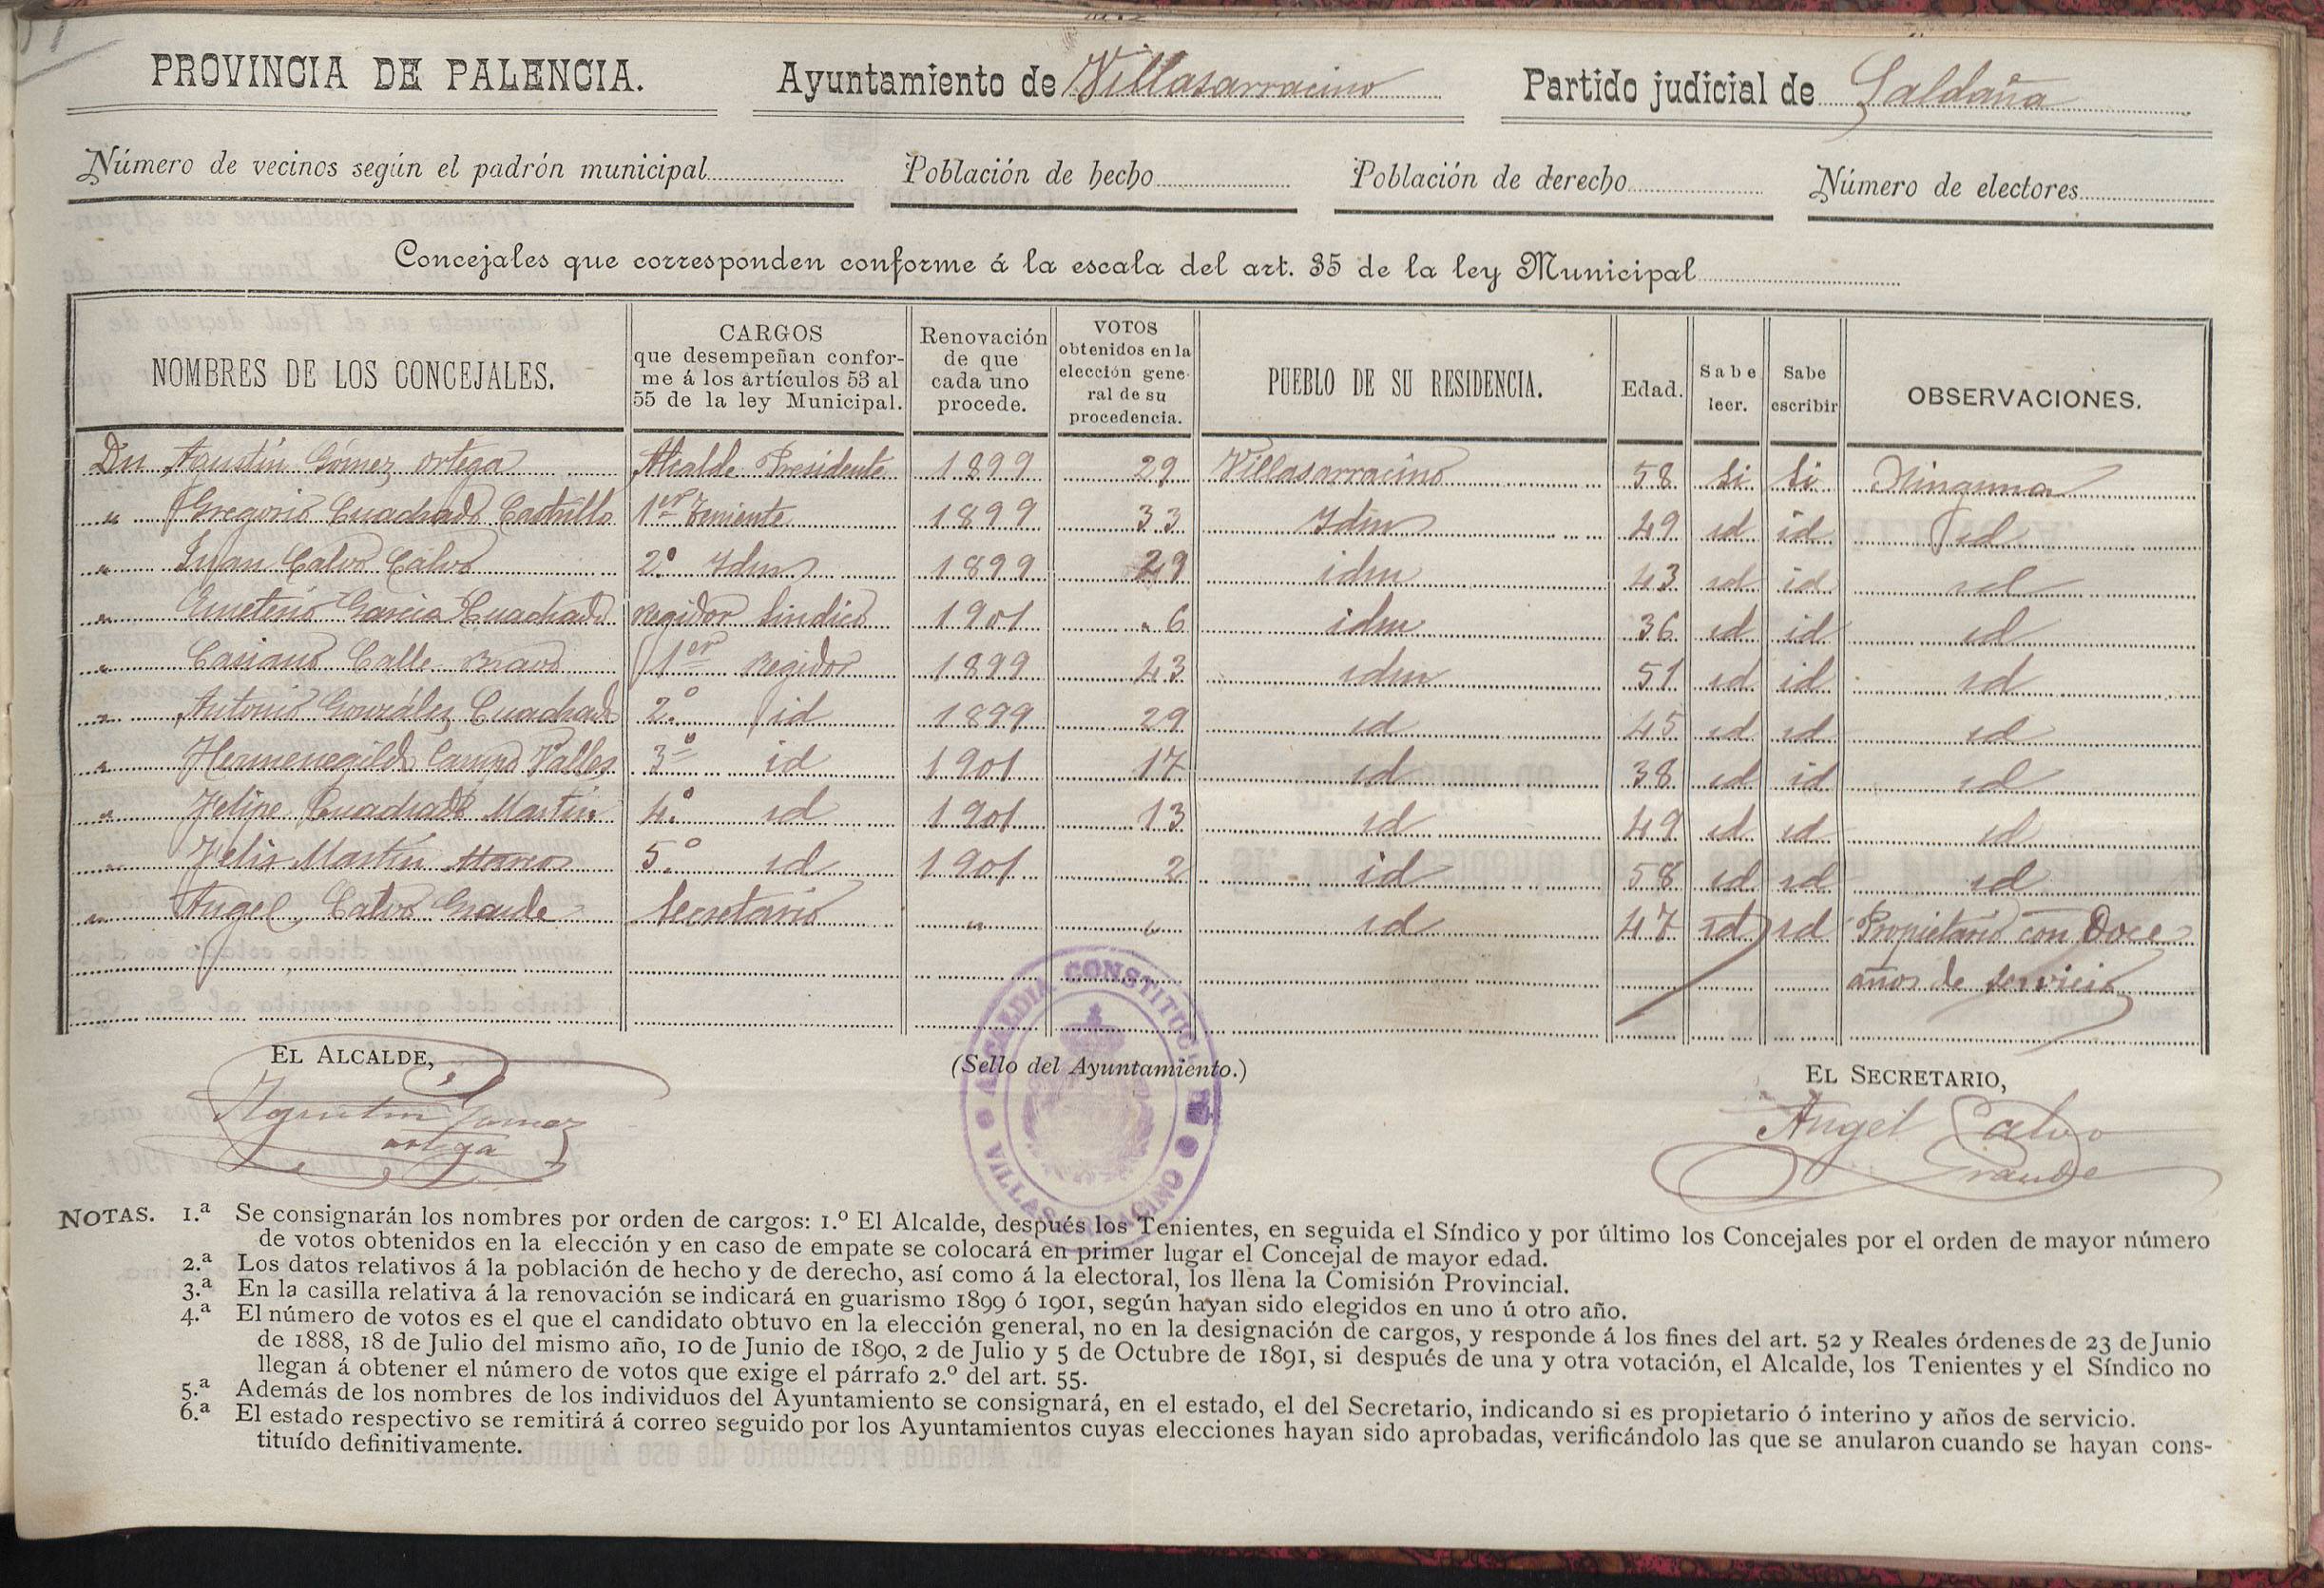 PROVINCIA DE PALENCIA. Ayuntamiento de Villasarracino Partido judicial de Saldaña
Número de vecinos según el padrón municipal Población de hecho Población de derecho Número de electores
Concejales que corresponden conforme á la escala del art. 35 de la ley Municipal
NOMBRES DE LOS CONCEJALES. CARGOS que desempeñan confor- me á los artículos 53 al 55 de la ley Municipal. Renovación de que cada uno procede. VOTOS obtenidos en la elección gene- ral de su procedencia. PUEBLO DE SU RESIDENCIA. Edad. Sabe leer. Sabe escribir OBSERVACIONES.
Dn Agustín Gómez Ortega Alcalde Presidente 1899 29 Villasarracino 58 Si Si Ninguna
" Gregorio Cuadrado Castrillo 1er Teniente 1899 33 Idm 49 id id id
" Juan Calvo Calvo 2.º Idm 1899 29 idm 43 id id id
" Emeterio García Cuadrado Regidor Sindico 1901 " 6 idm 36 id id id
" Casiano Calle Bravo 1er Regidor 1899 43 idm 51 id id id
" Antonio González Cuadrado 2.º id 1899 29 id 45 id id id
" Hermenegildo Campo Valles 3º id 1901 17 id 38 id id id
" Felipe Cuadrado Martín 4.º id 1901 13 id 49 id id id
" Felix Martín 5.º id 1901 2 id 58 id id id
" Angel Calvo Grande Secretario " " id 47 id id Propietario con Doce
años de servicio
EL ALCALDE, (Sello del Ayuntamiento.) EL SECRETARIO,
Agustin Gomez
ortega
Angel Calvo
Grande
ALCALDIA CONSTITUCIONAL DE VILLASARRACINO
NOTAS. 1.ª Se consignarán los nombres por orden de cargos: 1.º El Alcalde, después los Tenientes, en seguida el Síndico y por último los Concejales por el orden de mayor número
de votos obtenidos en la elección y en caso de empate se colocará en primer lugar el Concejal de mayor edad.
2.ª Los datos relativos á la población de hecho y de derecho, así como á la electoral, los llena la Comisión Provincial.
3.ª En la casilla relativa á la renovación se indicará en guarismo 1899 ó 1901, según hayan sido elegidos en uno ú otro año.
4.ª El número de votos es el que el candidato obtuvo en la elección general, no en la designación de cargos, y responde á los fines del art. 52 y Reales órdenes de 23 de Junio
de 1888, 18 de Julio del mismo año, 10 de Junio de 1890, 2 de Julio y 5 de Octubre de 1891, si después de una y otra votación, el Alcalde, los Tenientes y el Síndico no
llegan á obtener el número de votos que exige el párrafo 2.º del art. 55.
5.ª Además de los nombres de los individuos del Ayuntamiento se consignará, en el estado, el del Secretario, indicando si es propietario ó interino y años de servicio.
6.ª El estado respectivo se remitirá á correo seguido por los Ayuntamientos cuyas elecciones hayan sido aprobadas, verificándolo las que se anularon cuando se hayan cons-
tituído definitivamente.